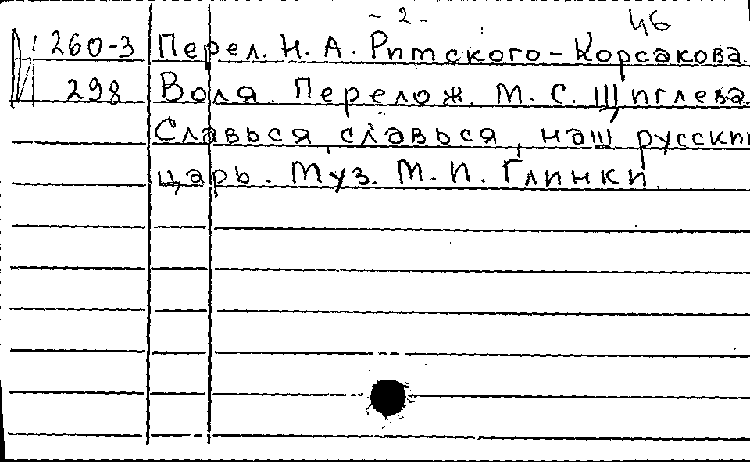 - 2 -
46
260-3 Перел. Н. А. Римского-Корсакова.
298 Воля. Перелож. М. С. Щиглева
Славься, славься, наш русский
царь. Муз. М. И. Глинки.